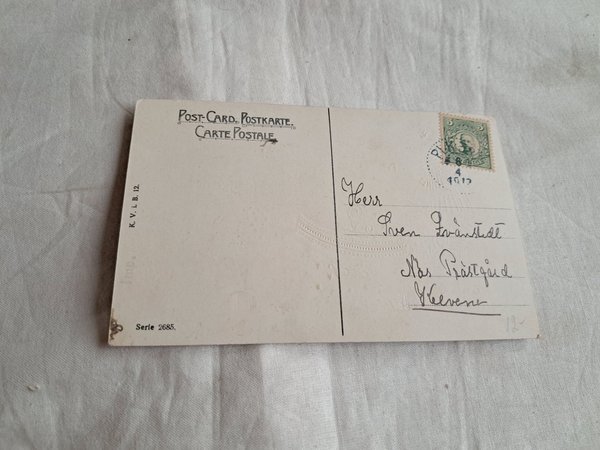 POST-CARD. POSTKARTE.
CARTE POSTALE
K. V. i. B. 12.
Serie 2685.
5
8
4
1912
Herr
Sven Zvånstedt
Näs Prästgård
Klevene
12-